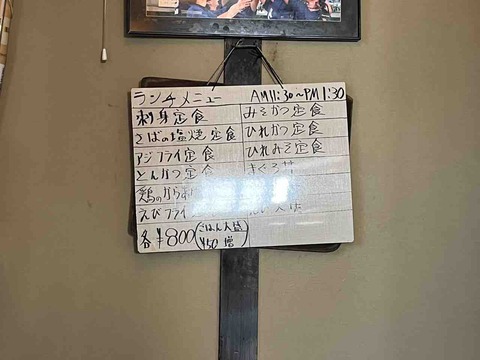 ランチメニュー AM11:30〜PM1:30
刺身定食
さばの塩焼定食
アジフライ定食
とんかつ定食
鶏のから
えびフライ
みそかつ定食
ひれかつ定食
ひれみそ定食
まぐろ
各¥800(ごはん大盛
¥50増)